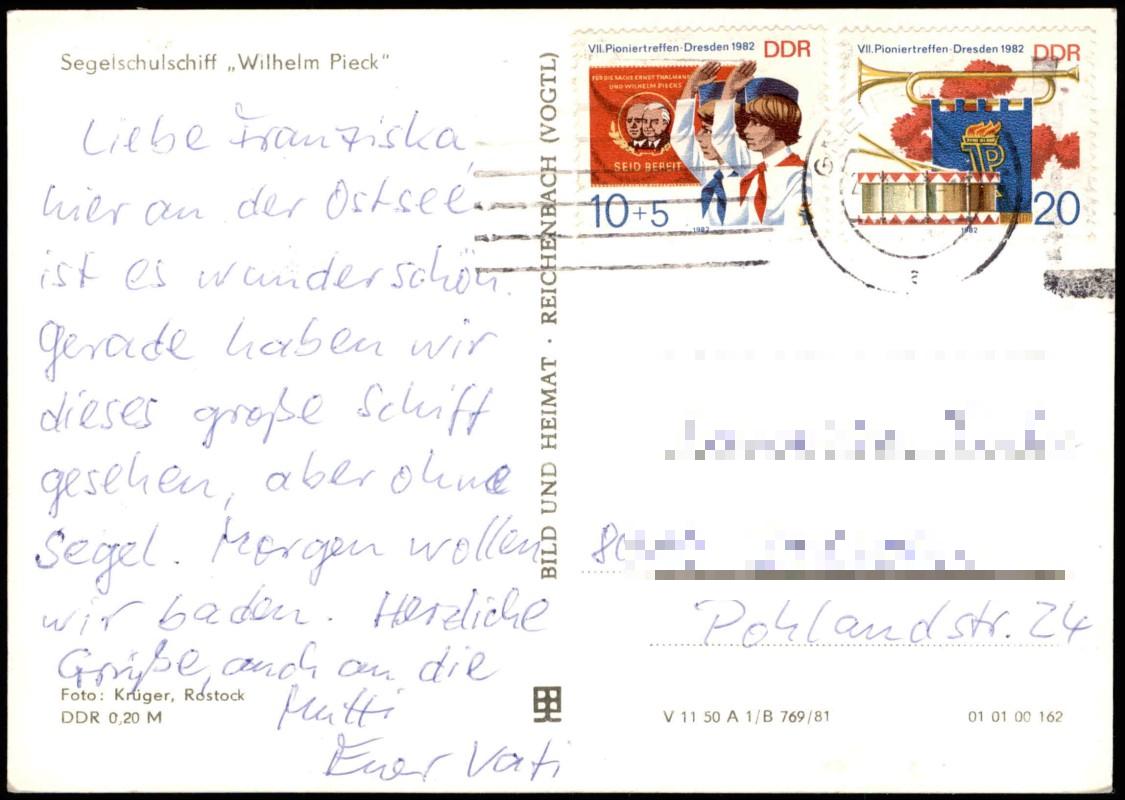 Segelschulschiff „Wilhelm Pieck“
Liebe Franziska,
hier an der Ostsee
ist es wunderschön.
Gerade haben wir
dieses große Schiff
gesehen, aber ohne
Segel. Morgen wollen
wir baden. Herzliche
Grüße, auch an die
Mutti
Euer Vati
Foto: Krüger, Rostock
DDR 0,20 M
BILD UND HEIMAT · REICHENBACH (VOGTL)
VII. Pioniertreffen · Dresden 1982 DDR
FÜR DIE SACHE ERNST THÄLMANNS
UND WILHELM PIECKS
SEID BEREIT
10+5
1982
VII. Pioniertreffen · Dresden 1982 DDR
20
1982
Pohlandstr. 24
V 11 50 A 1/B 769/81
01 01 00 162